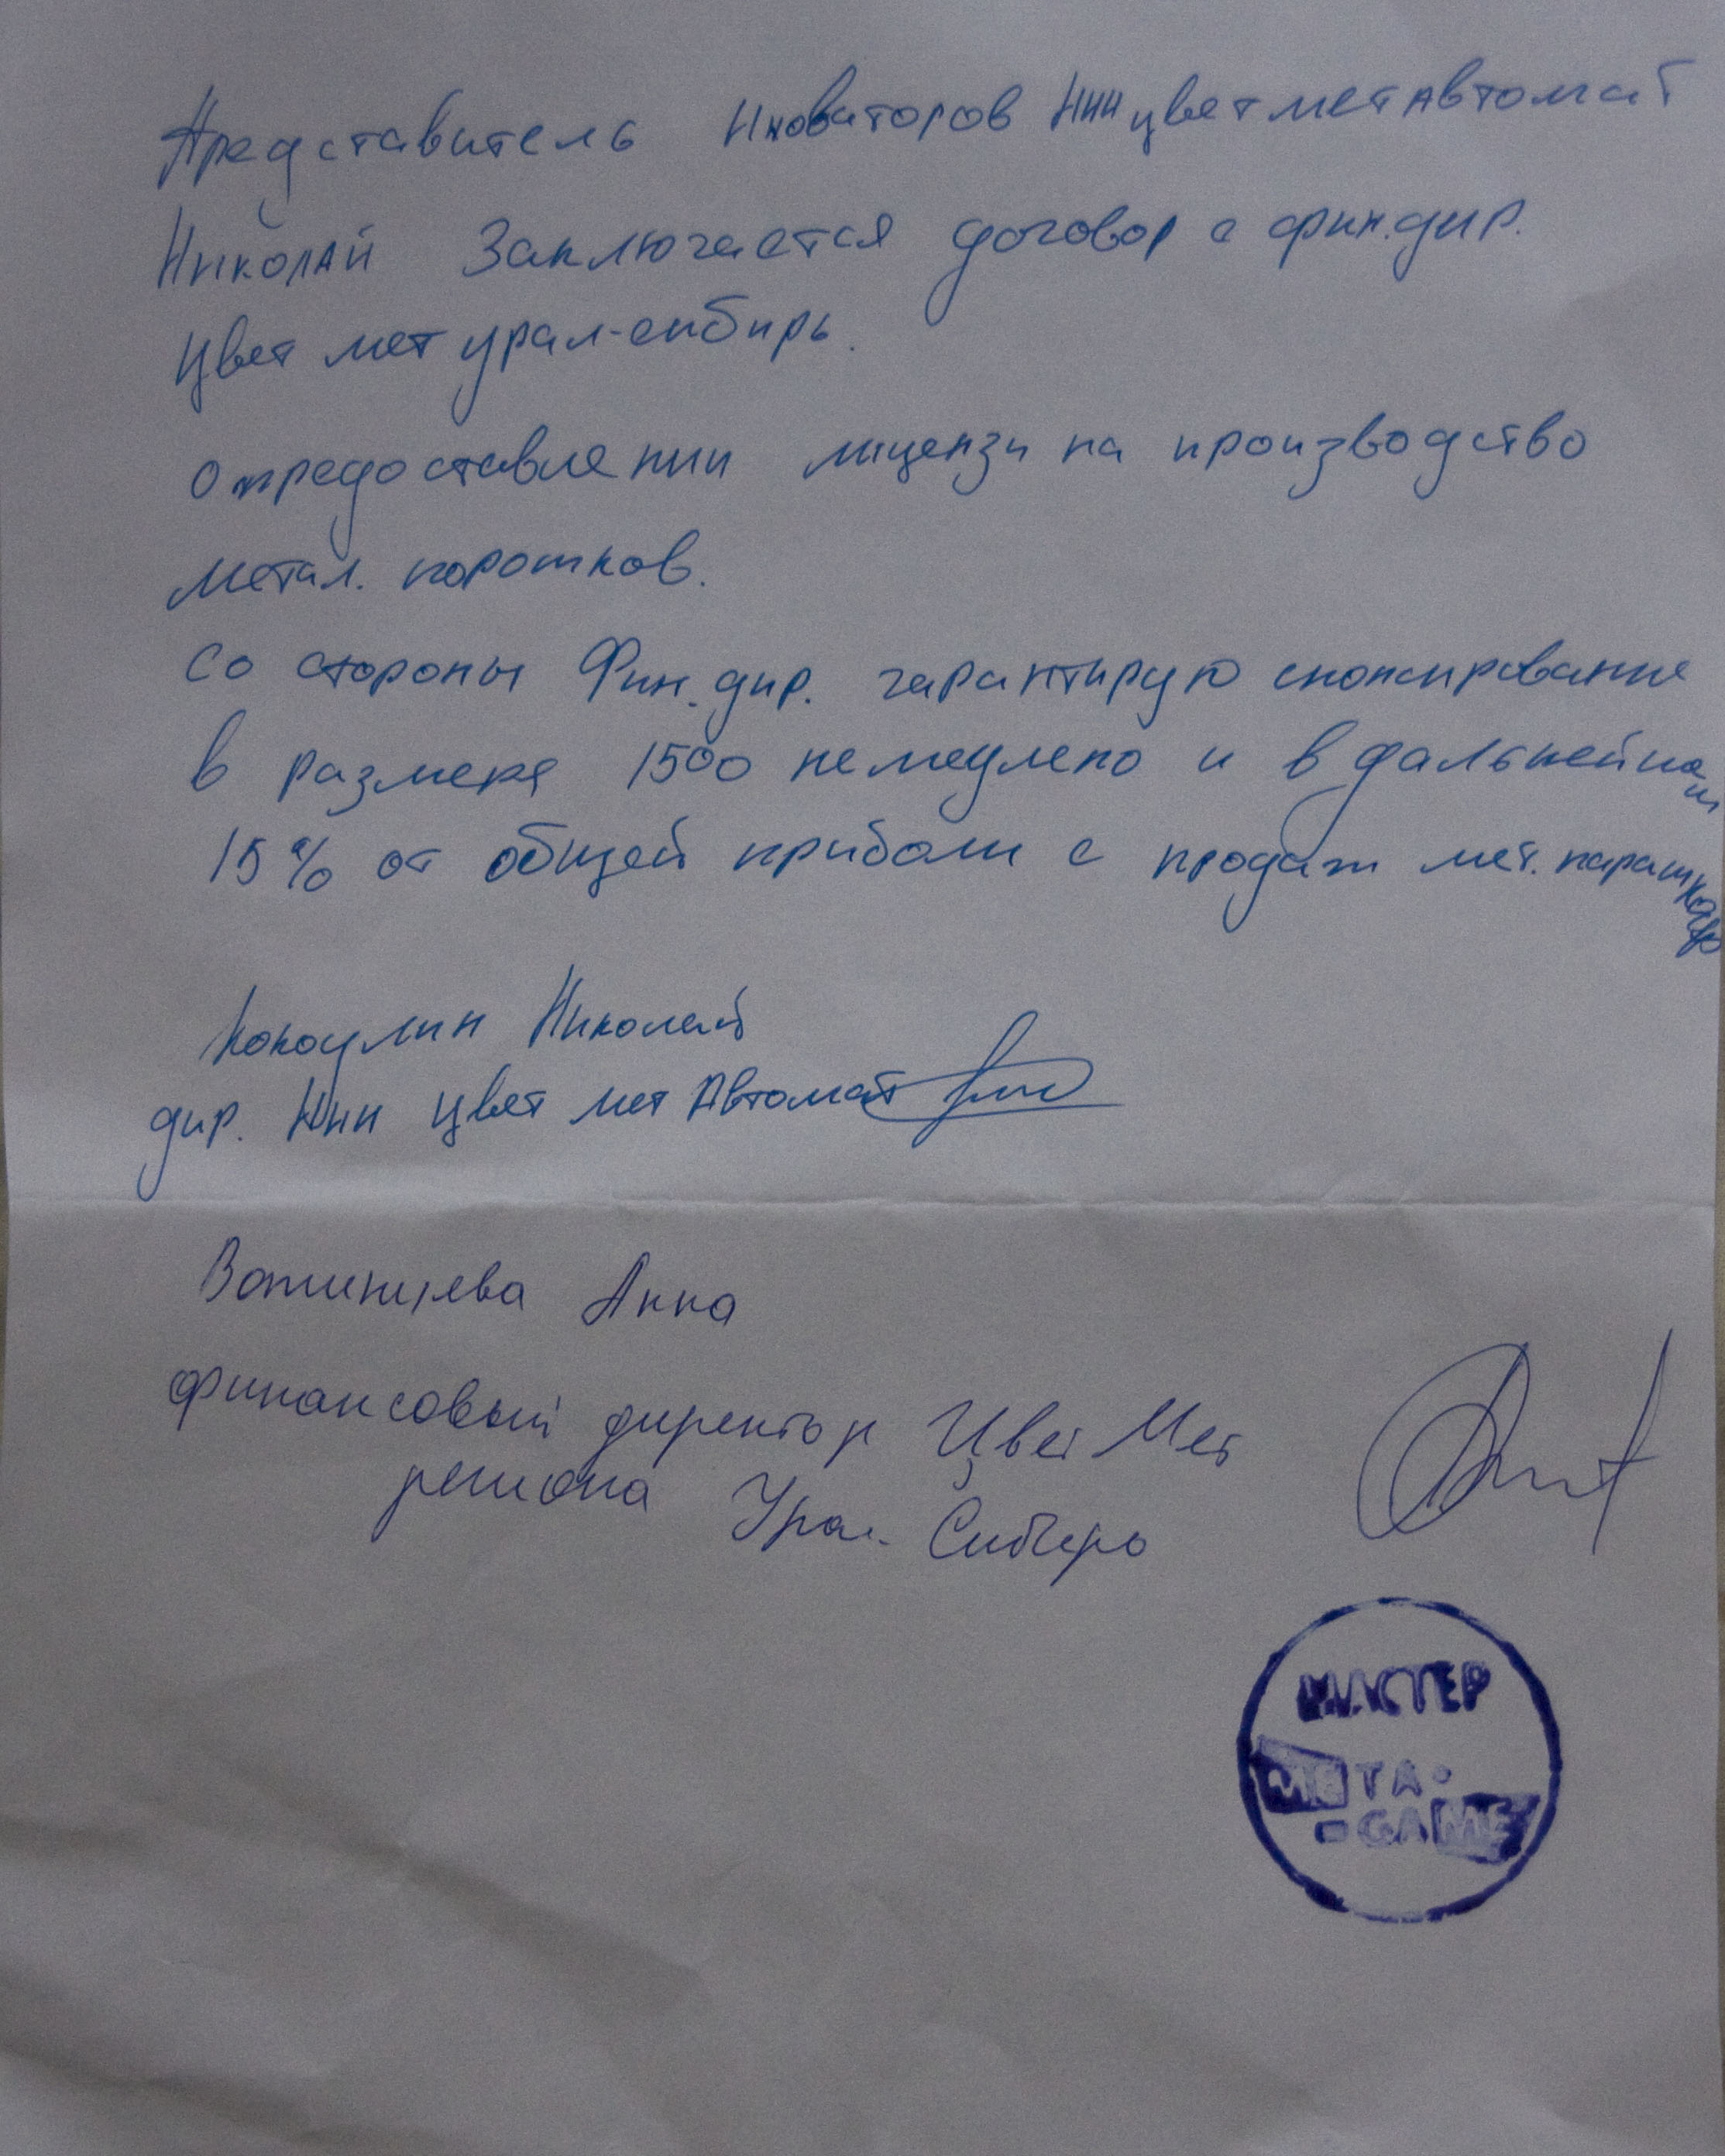 Представитель Иноваторов Нии цветметавтомат
Николай Заключается договор с фин.дир.
Цвет мет урал-сибирь.
о предоставлении лицензи на производство
метал. порошков.
Со стороны Фин.дир. гарантирую
в размере 1500 немедлено и в дальнейшем
15% от общей прибыли с продаж мет. парашков
Кокоулин Николай
дир. Нии Цвет мет Автомат
Вотинцева Анна
финансовый директор ЦветМет
региона Урал-Сибирь
МАСТЕР
МЕТА-
-GAME